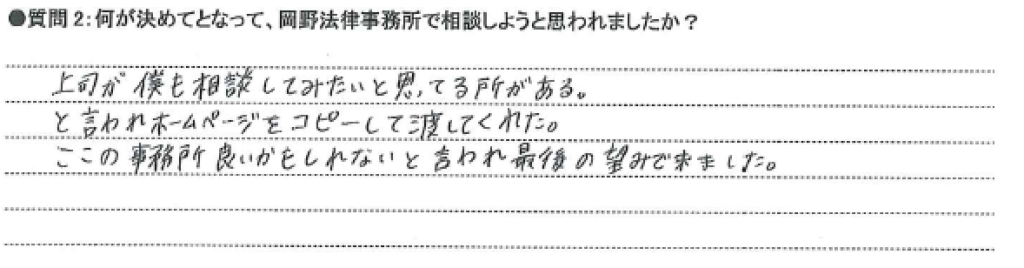 ●質問2:何が決めてとなって、岡野法律事務所で相談しようと思われましたか?
上司が僕も相談してみたいと思ってる所がある。
と言われホームページをコピーして渡してくれた。
ここの事務所良いかもしれないと言われ最後の望みで来ました。